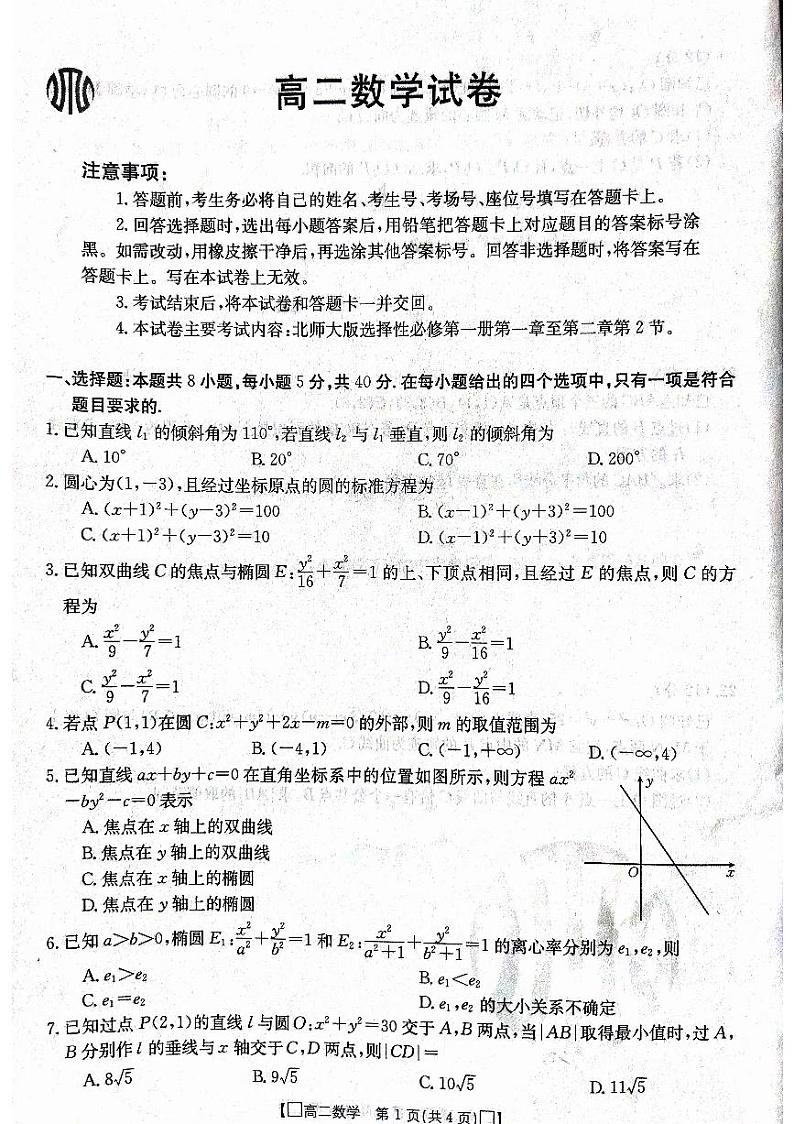 高二数学试卷
注意事项:
1. 答题前,考生务必将自己的姓名、考生号、考场号、座位号填写在答题卡上。
2. 回答选择题时,选出每小题答案后,用铅笔把答题卡上对应题目的答案标号涂
黑。如需改动,用橡皮擦干净后,再选涂其他答案标号。回答非选择题时,将答案写在
答题卡上。写在本试卷上无效。
3. 考试结束后,将本试卷和答题卡一并交回。
4. 本试卷主要考试内容:北师大版选择性必修第一册第一章至第二章第2节。
一、选择题:本题共8小题,每小题5分,共40分.在每小题给出的四个选项中,只有一项是符合
题目要求的.
1. 已知直线 l₁ 的倾斜角为 110°,若直线 l₂ 与 l₁ 垂直,则 l₂ 的倾斜角为
A. 10° B. 20° C. 70° D. 200°
2. 圆心为(1,-3),且经过坐标原点的圆的标准方程为
A. (x+1)²+(y-3)²=100 B. (x-1)²+(y+3)²=100
C. (x+1)²+(y-3)²=10 D. (x-1)²+(y+3)²=10
3. 已知双曲线 C 的焦点与椭圆 E: y²/16+x²/7=1 的上、下顶点相同,且经过 E 的焦点,则 C 的方
程为
A. x²/9-y²/7=1 B. y²/9-x²/16=1
C. y²/9-x²/7=1 D. x²/9-y²/16=1
4. 若点 P(1,1)在圆 C:x²+y²+2x-m=0 的外部,则 m 的取值范围为
A. (-1,4) B. (-4,1) C. (-1,+∞) D. (-∞,4)
5. 已知直线 ax+by+c=0 在直角坐标系中的位置如图所示,则方程 ax²
-by²-c=0 表示
A. 焦点在 x 轴上的双曲线
B. 焦点在 y 轴上的双曲线
C. 焦点在 x 轴上的椭圆
D. 焦点在 y 轴上的椭圆
y
O x
6. 已知 a>b>0,椭圆 E₁: x²/a²+y²/b²=1 和 E₂: x²/(a²+1)+y²/(b²+1)=1 的离心率分别为 e₁,e₂,则
A. e₁>e₂ B. e₁<e₂
C. e₁=e₂ D. e₁,e₂ 的大小关系不确定
7. 已知过点 P(2,1)的直线 l 与圆 O:x²+y²=30 交于 A,B 两点,当|AB|取得最小值时,过 A,
B 分别作 l 的垂线与 x 轴交于 C,D 两点,则|CD|=
A. 8√5 B. 9√5 C. 10√5 D. 11√5
【□高二数学 第 1 页(共 4 页)□】